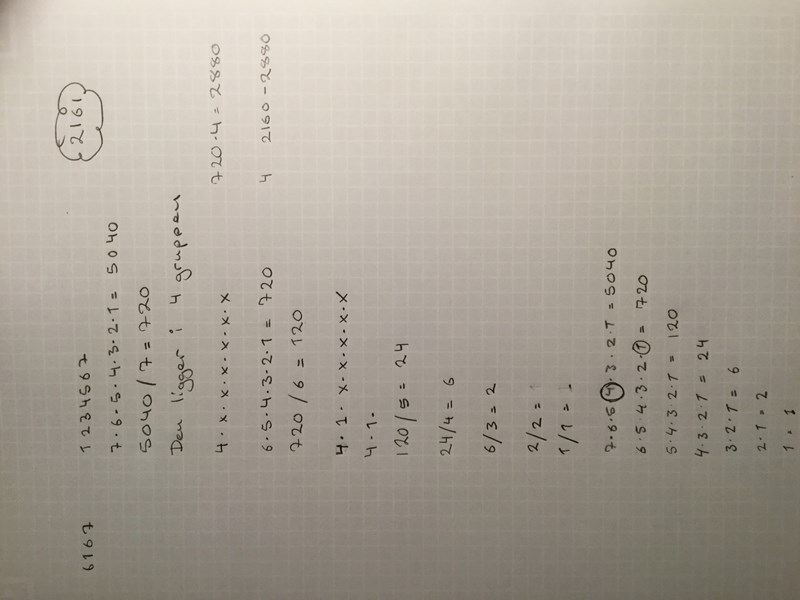 6167 1234567 2161
7·6·5·4·3·2·1 = 5040
5040/7 = 720
Den ligger i 4 gruppen
4·x·x·x·x·x·x 720·4 = 2880
6·5·4·3·2·1 = 720 4 2160-2880
720/6 = 120
4·1·x·x·x·x·x
4·1·
120/5 = 24
24/4 = 6
6/3 = 2
2/2 = 1
1/1 =
7·6·5·4·3·2·1 = 5040
6·5·4·3·2·1 = 720
5·4·3·2·1 = 120
4·3·2·1 = 24
3·2·1 = 6
2·1 = 2
1 = 1